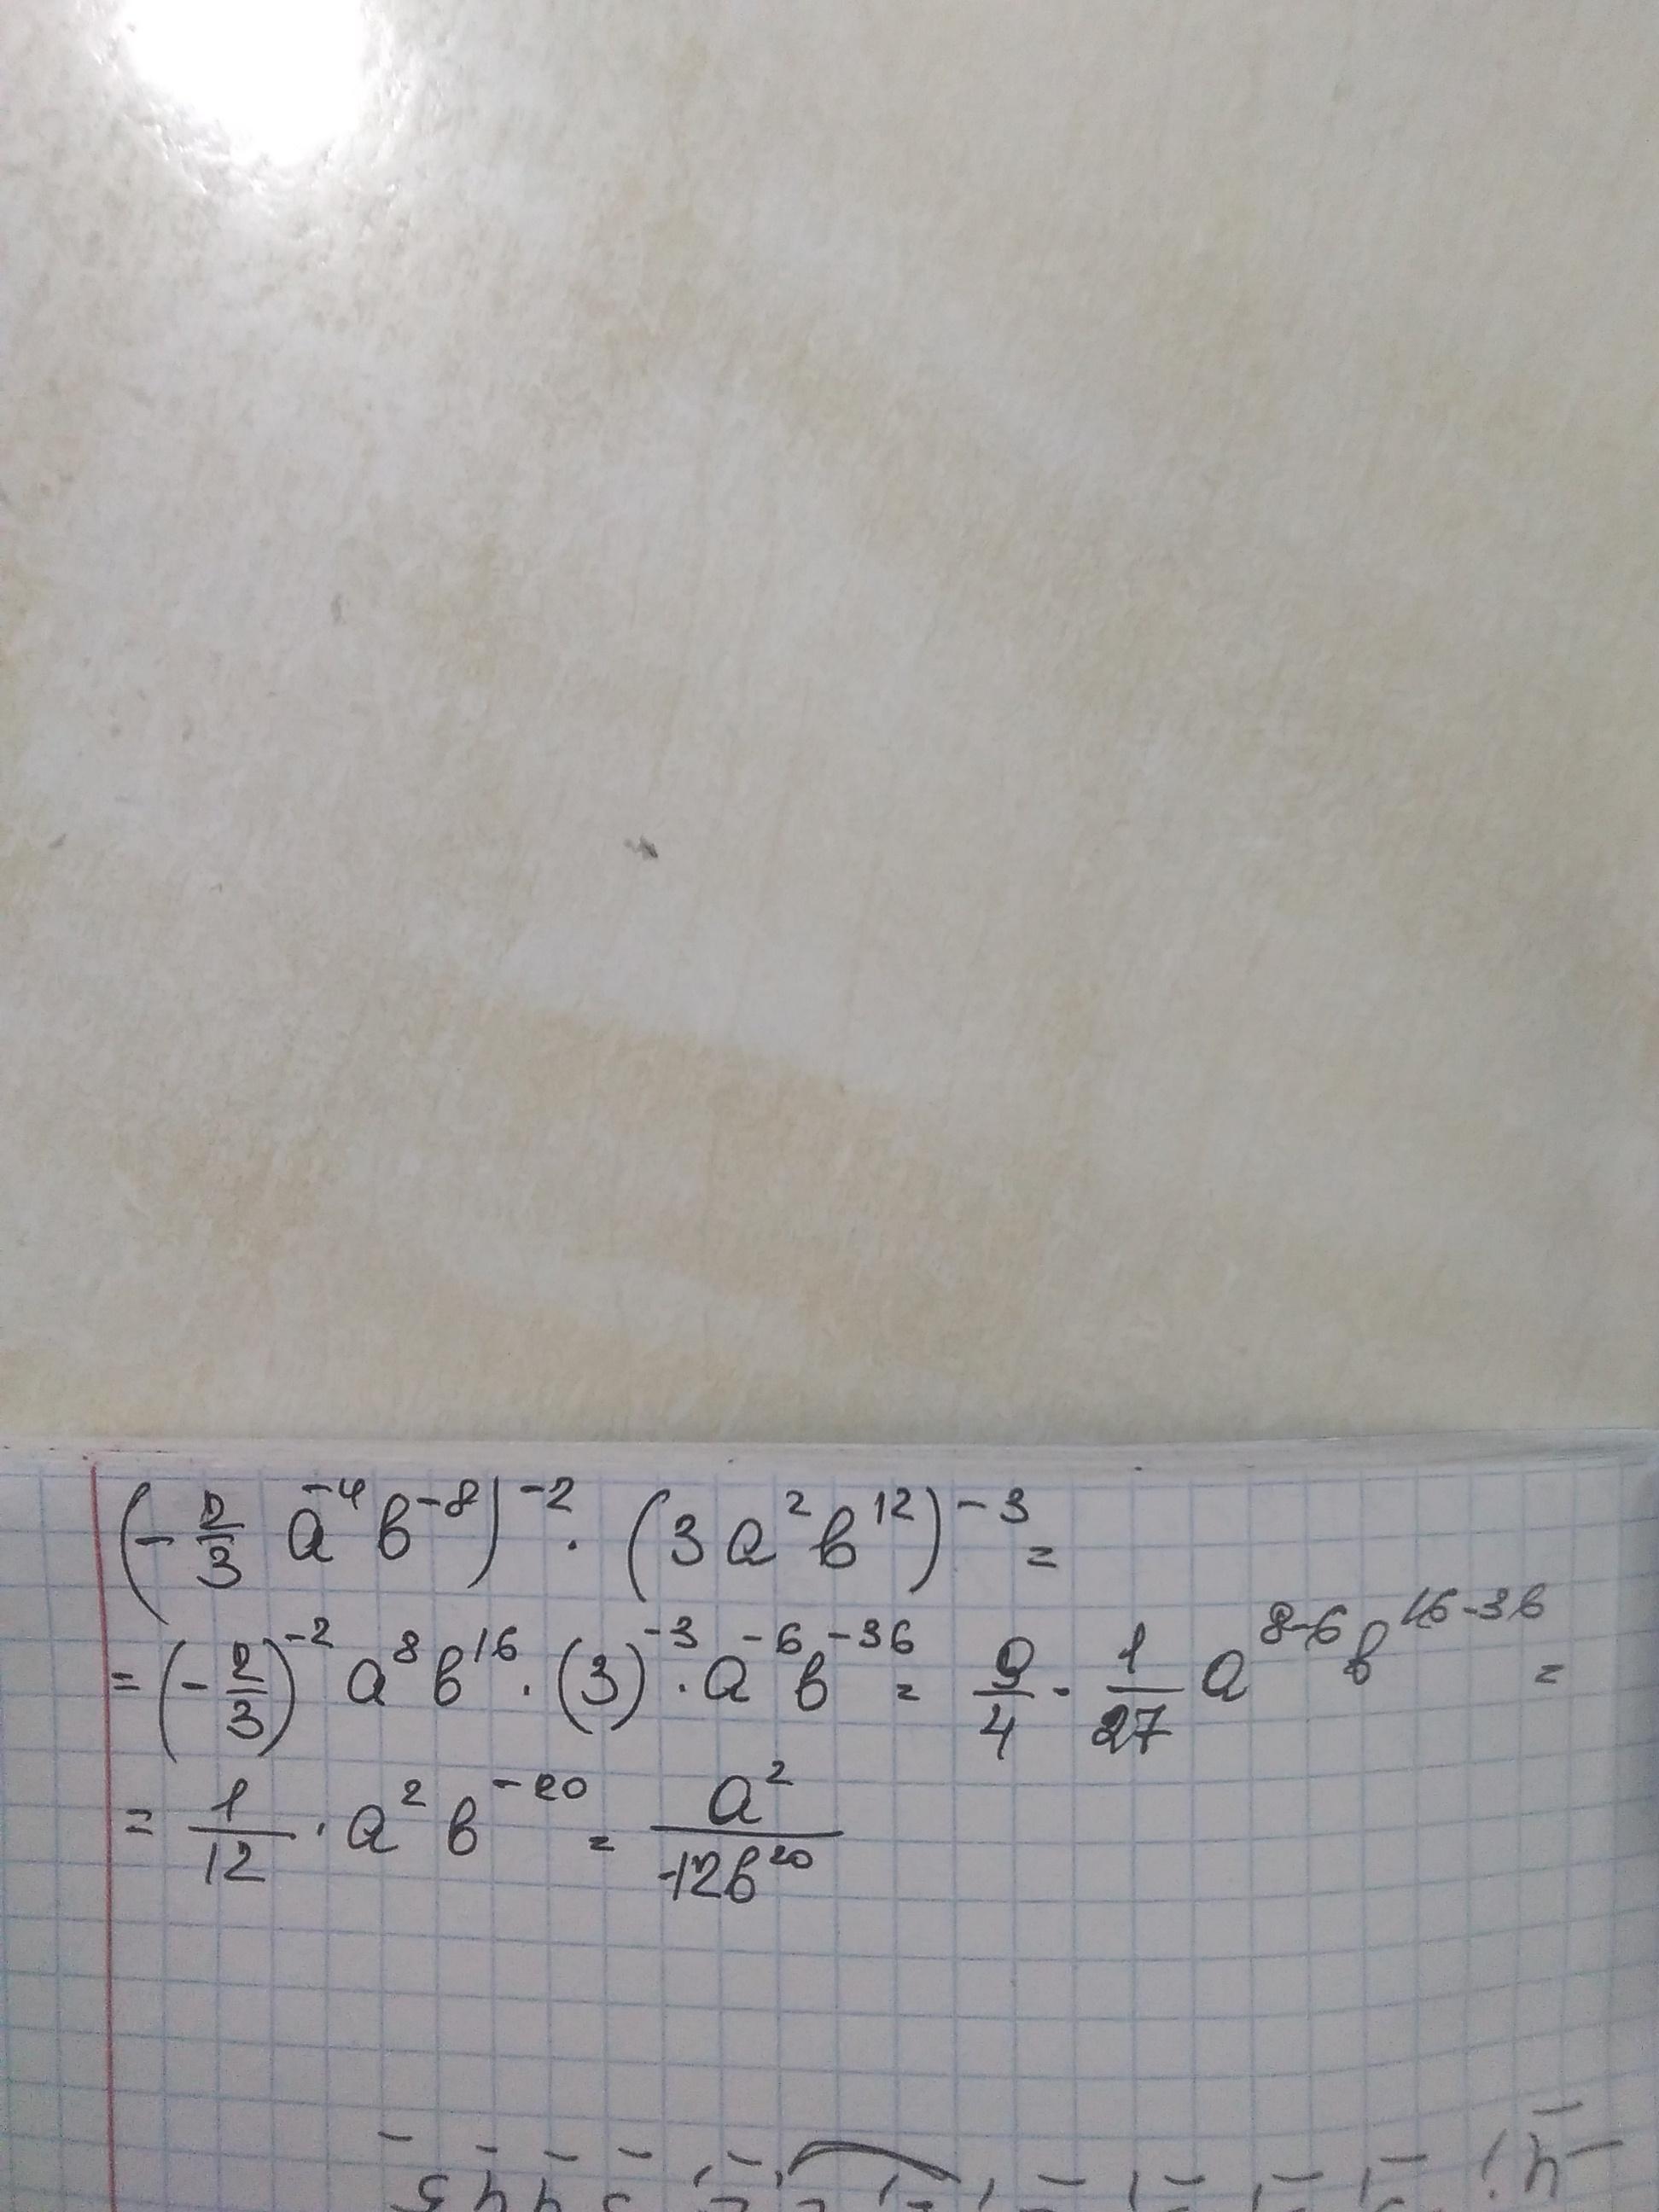 (-2/3 a^-4 b^-8)^-2 · (3a^2b^12)^-3 =
= (-2/3)^-2 a^8 b^16 · (3)^-3 · a^-6 b^-36 = 9/4 · 1/27 a^8-6 b^16-36 =
= 1/12 · a^2 b^-20 = a^2/12b^20